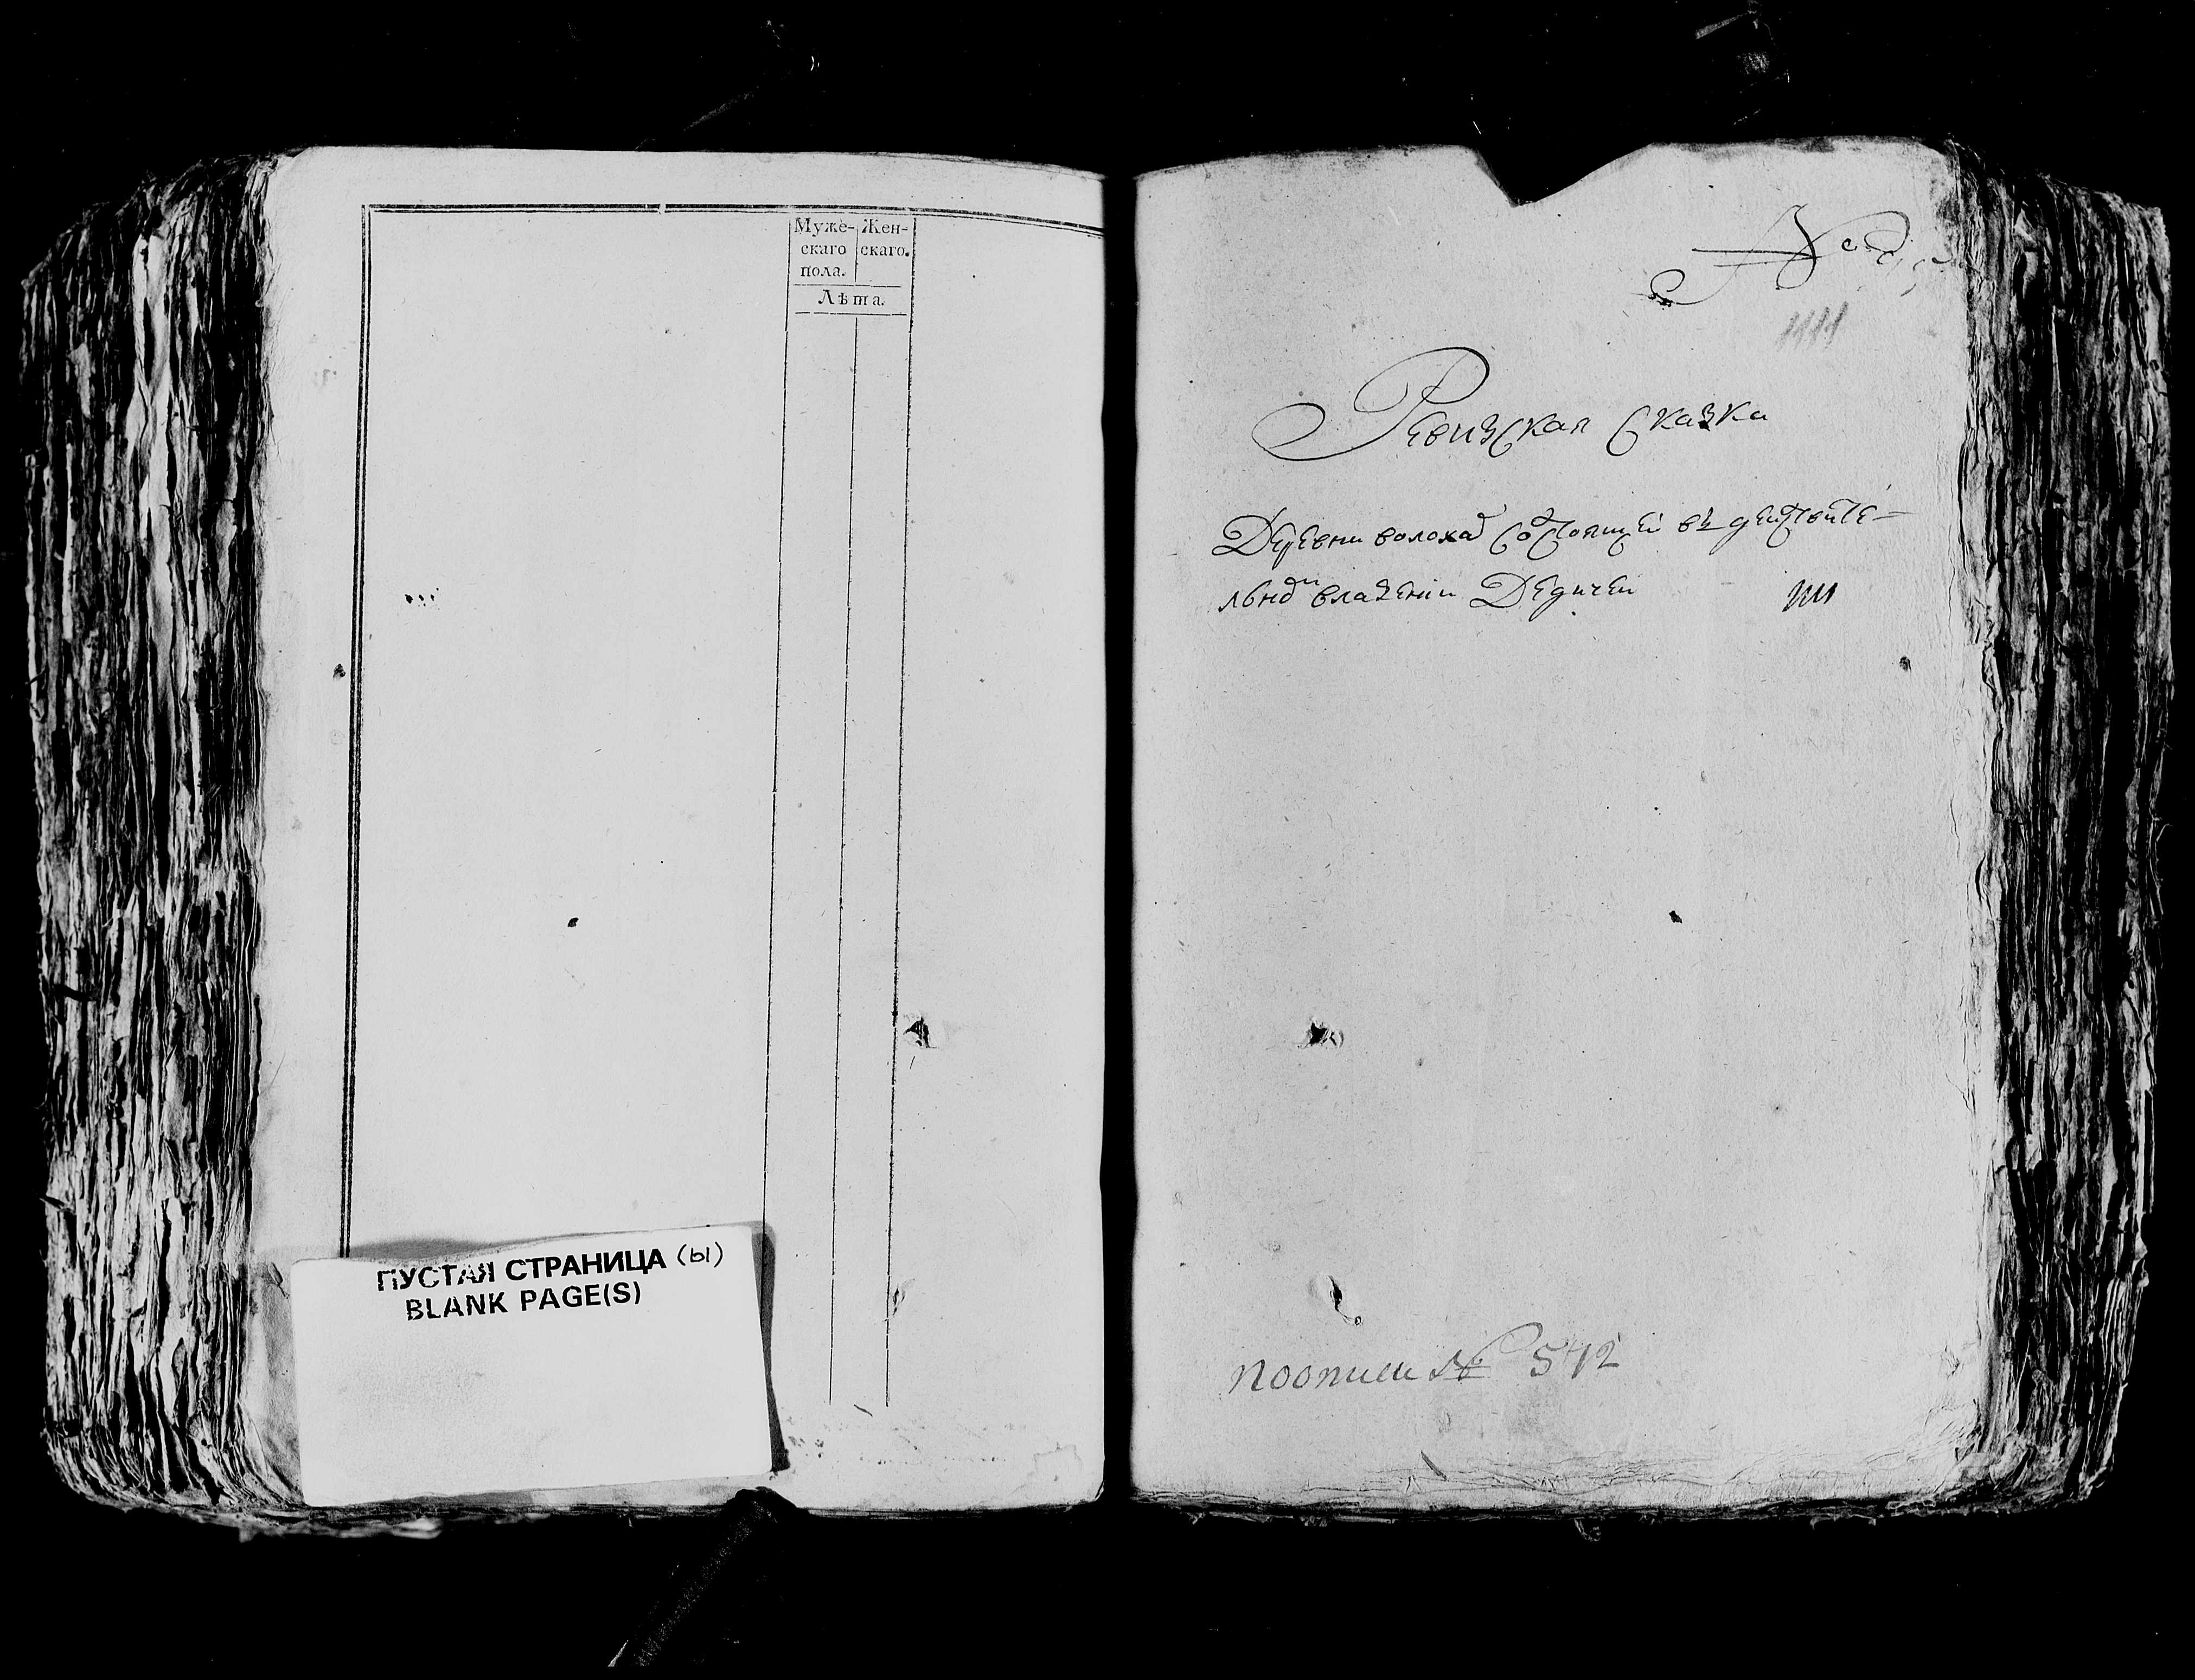 Муже- Жен-
скаго скаго.
пола.
Лѣта.
ПУСТАЯ СТРАНИЦА (ы)
BLANK PAGE(S)
1111
Ревизская Сказка
Деревни волохав состоящей въ действите-
льном владении Дедичей
по описи № 542